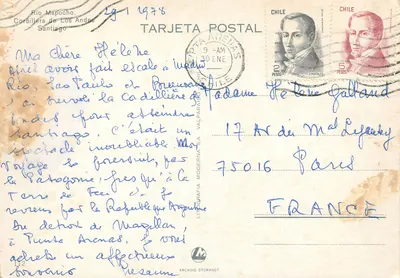 Rio Mapocho.
Cordillera de Los Andes
Santiago
29-1-1978
TARJETA POSTAL
CHILE
2
PESOS
CHILE
5
PESOS
PTA. ARENAS
9-AM
30 ENE
CHILE
Ma chère Hélène
Après avoir fait escale à Madrid
Rio Sao Paulo et Buenos Aires
survolé la Cordillère des
Andes pour atteindre
Santiago. C'était un
spectacle inoubliable. Mon
Voyage se poursuit par
la Patagonie jusqu'à la
Terre de Feu et
par la République Argentine
Du détroit de Magellan,
à Punta Arenas, je vous
adresse un affectueux
souvenir Suzanne
Madame Hélène Galland
17 Av du Mal Lyautey
75016 Paris
FRANCE